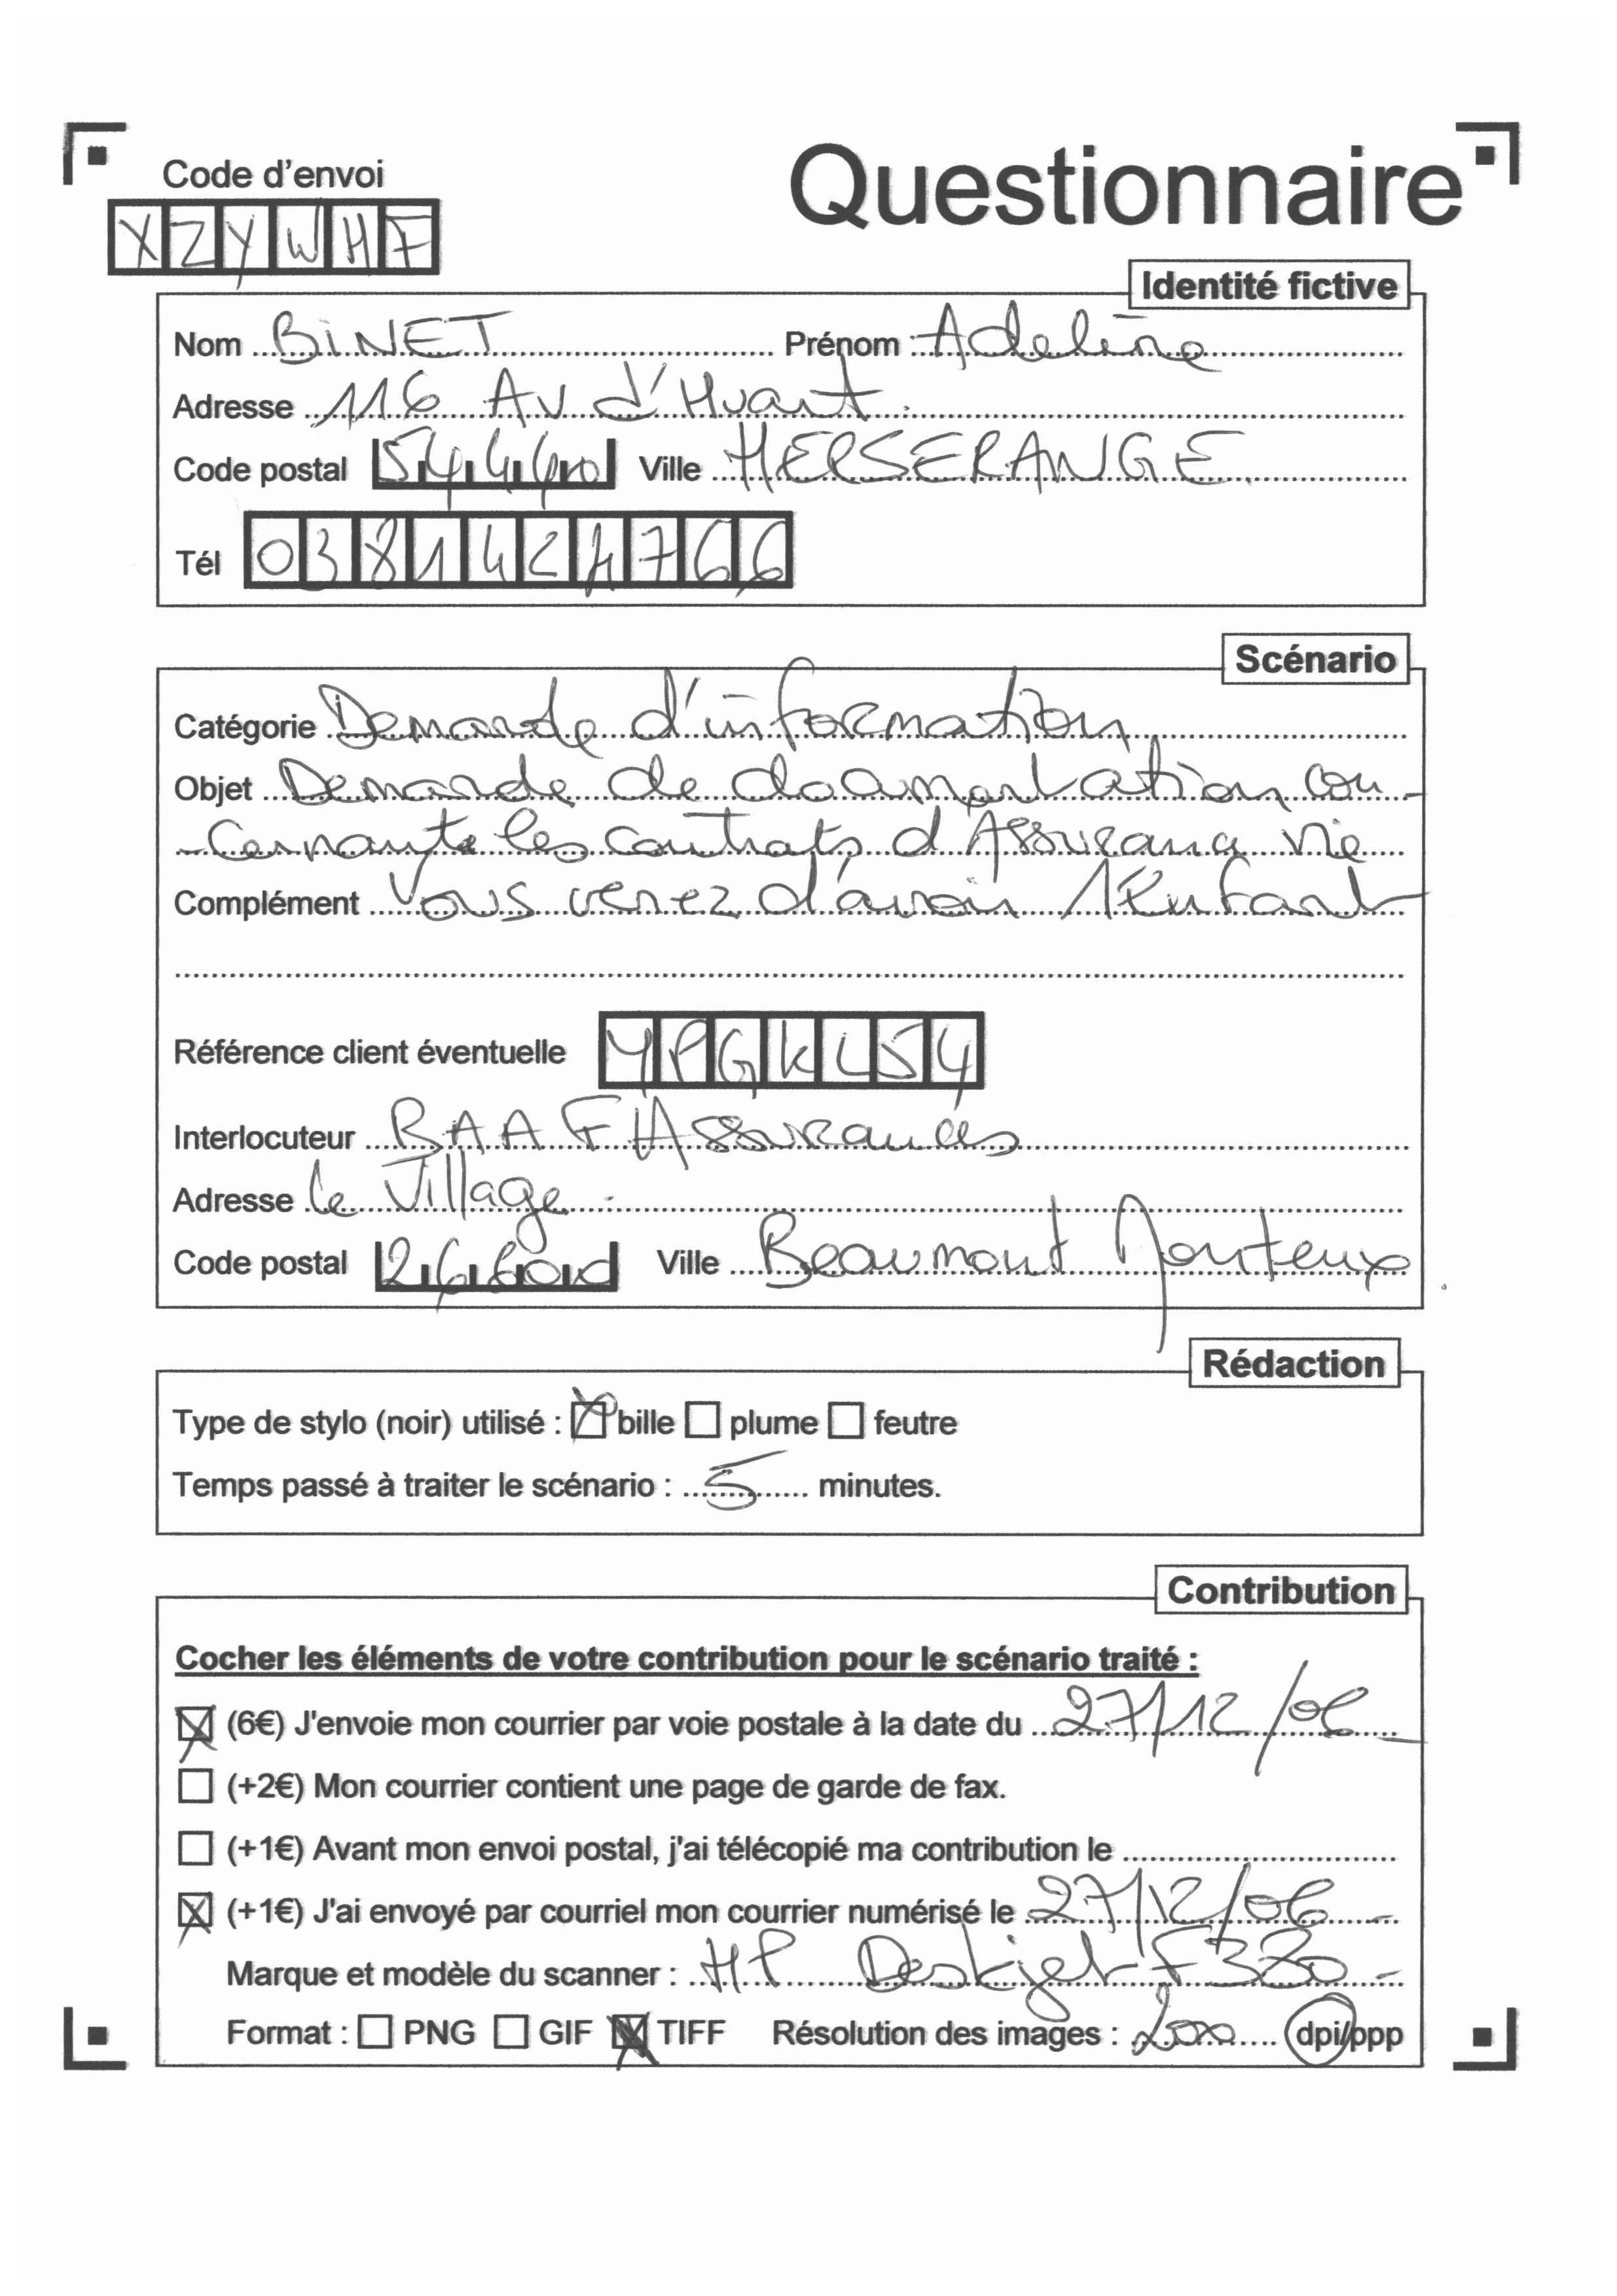 Code d'envoi
Questionnaire
XZYWHF
Identité fictive
Nom BINET Prénom Adeline
Adresse 116 Av d'Huart
Code postal 54440 Ville HERSERANGE
Tél 0381424766
Scénario
Catégorie Demande d'information
Objet Demande de documentation con-
-cernant les contrats d'Assurance Vie
Complément Vous venez d'avoir 1 Enfant
Référence client éventuelle YPGKL54
Interlocuteur RAAF Assurances
Adresse le Village
Code postal 26600 Ville Beaumont Monteux
Rédaction
Type de stylo (noir) utilisé : bille plume feutre
Temps passé à traiter le scénario : 5 minutes.
Contribution
Cocher les éléments de votre contribution pour le scénario traité :
(6€) J'envoie mon courrier par voie postale à la date du 27/12/06
(+2€) Mon courrier contient une page de garde de fax.
(+1€) Avant mon envoi postal, j'ai télécopié ma contribution le
(+1€) J'ai envoyé par courriel mon courrier numérisé le 27/12/06 -
Marque et modèle du scanner : HP Deskjet F380 -
Format : PNG GIF TIFF Résolution des images : 200 dpi/ppp